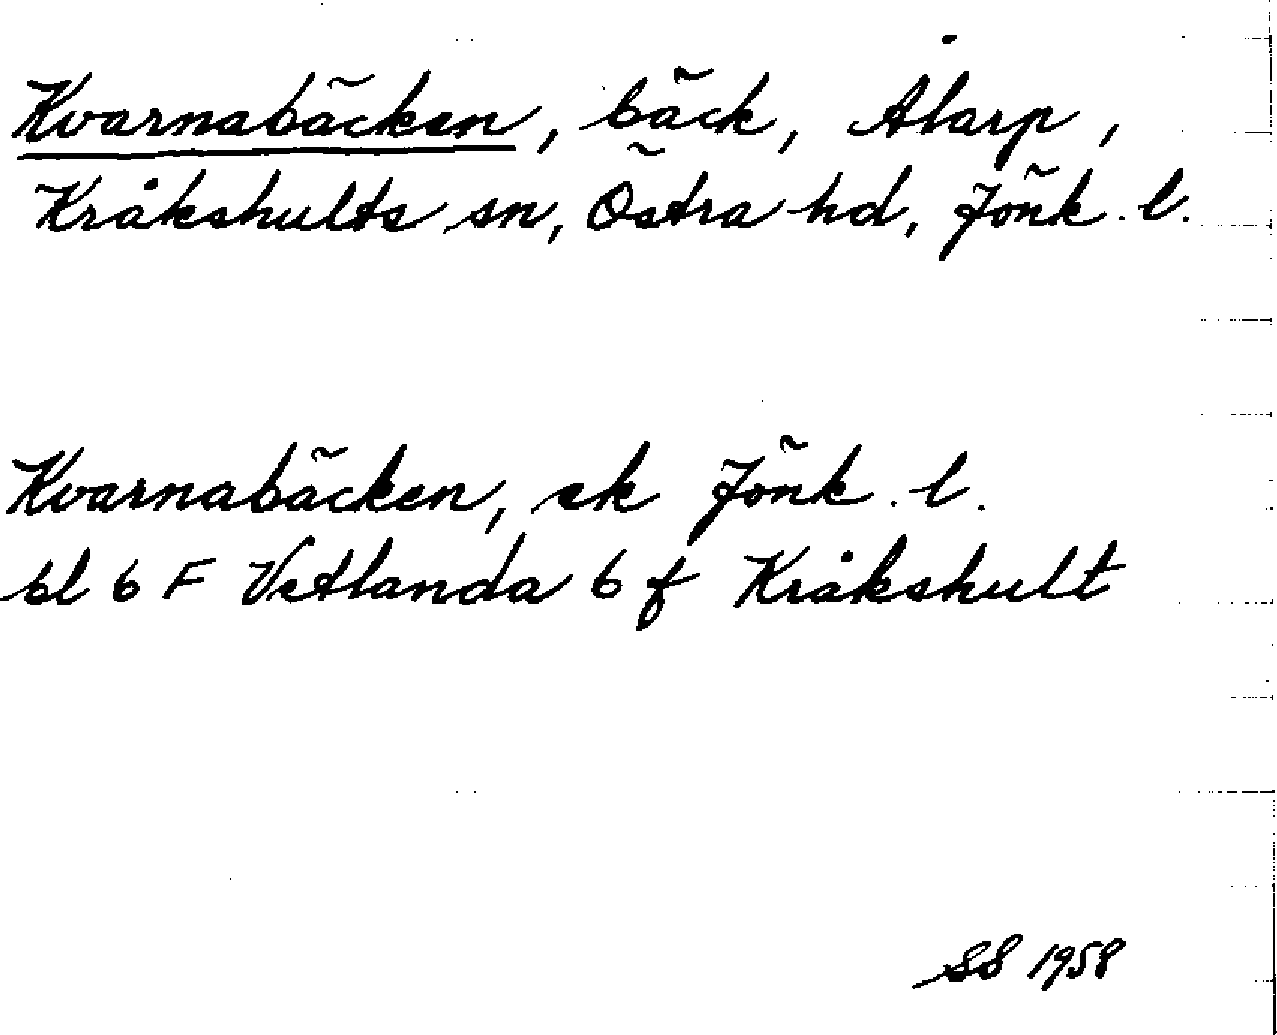 Kvarnabäcken, bäck, Ålarp,
Kråkshults sn, Östra hd, Jönk. l.
Kvarnabäcken, ek Jönk. l.
bl 6 F Vetlanda 6 f Kråkshult
SS 1958